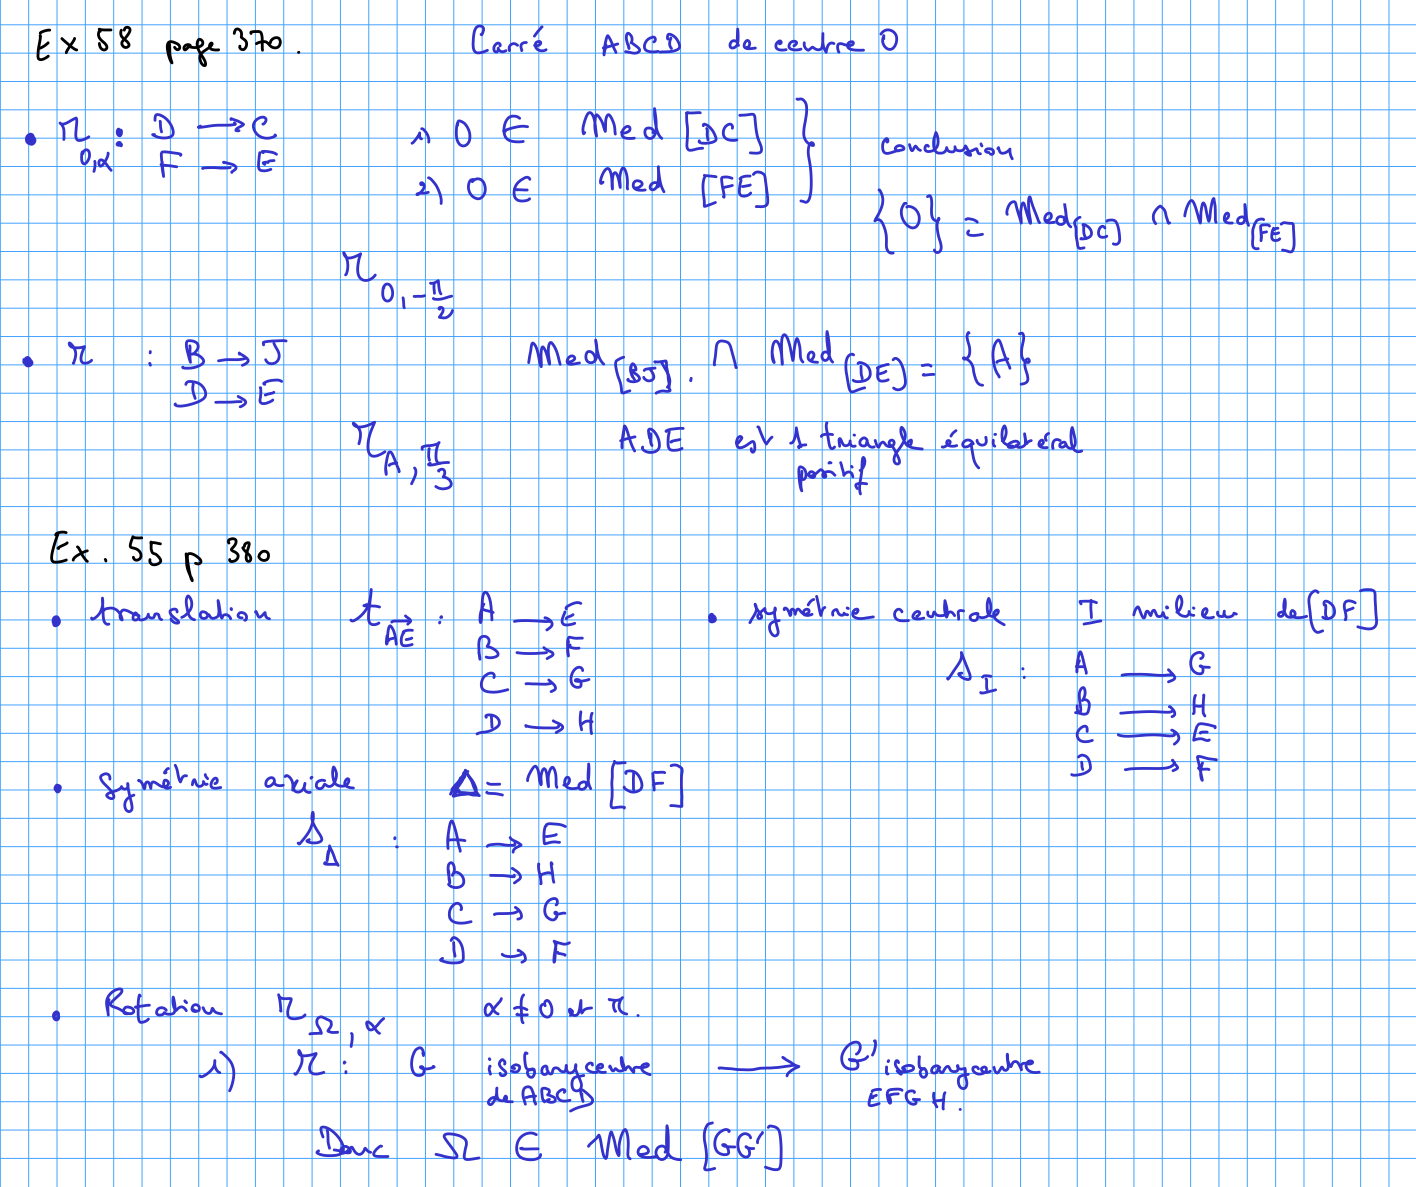 Ex 58 page 370.
Carré ABCD de centre O
• r_{O,α} : D → C
F → E
1) O ∈ Med [DC]
2) O ∈ Med [FE]
conclusion
{O} = Med_{[DC]} ∩ Med_{[FE]}
r_{O, -π/2}
• r : B → J
D → E
Med_{[BJ]}. ∩ Med_{[DE]} = {A}
r_{A, π/3}
ADE est 1 triangle équilatéral
positif
Ex. 55 p 380
• translation t_{\overrightarrow{AE}} : A → E
B → F
C → G
D → H
• symétrie centrale I milieu de [DF]
s_I : A → G
B → H
C → E
D → F
• symétrie axiale Δ = Med [DF]
s_Δ : A → E
B → H
C → G
D → F
• Rotation r_{Ω, α} α ≠ 0 et π.
1) r : G isobarycentre de ABCD → G' isobarycentre EFGH.
Donc Ω ∈ Med [GG']